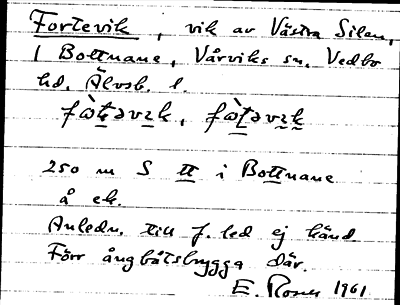 Fortevik, vik av Västra Silen,
i Bottnane, Vårviks sn, Vedbo
hd, Älvsb. l.
250 m S tt i Bottnane
å ek.
Anledn. till f. led ej känd
Förr ångbåtsbrygga där.
1961